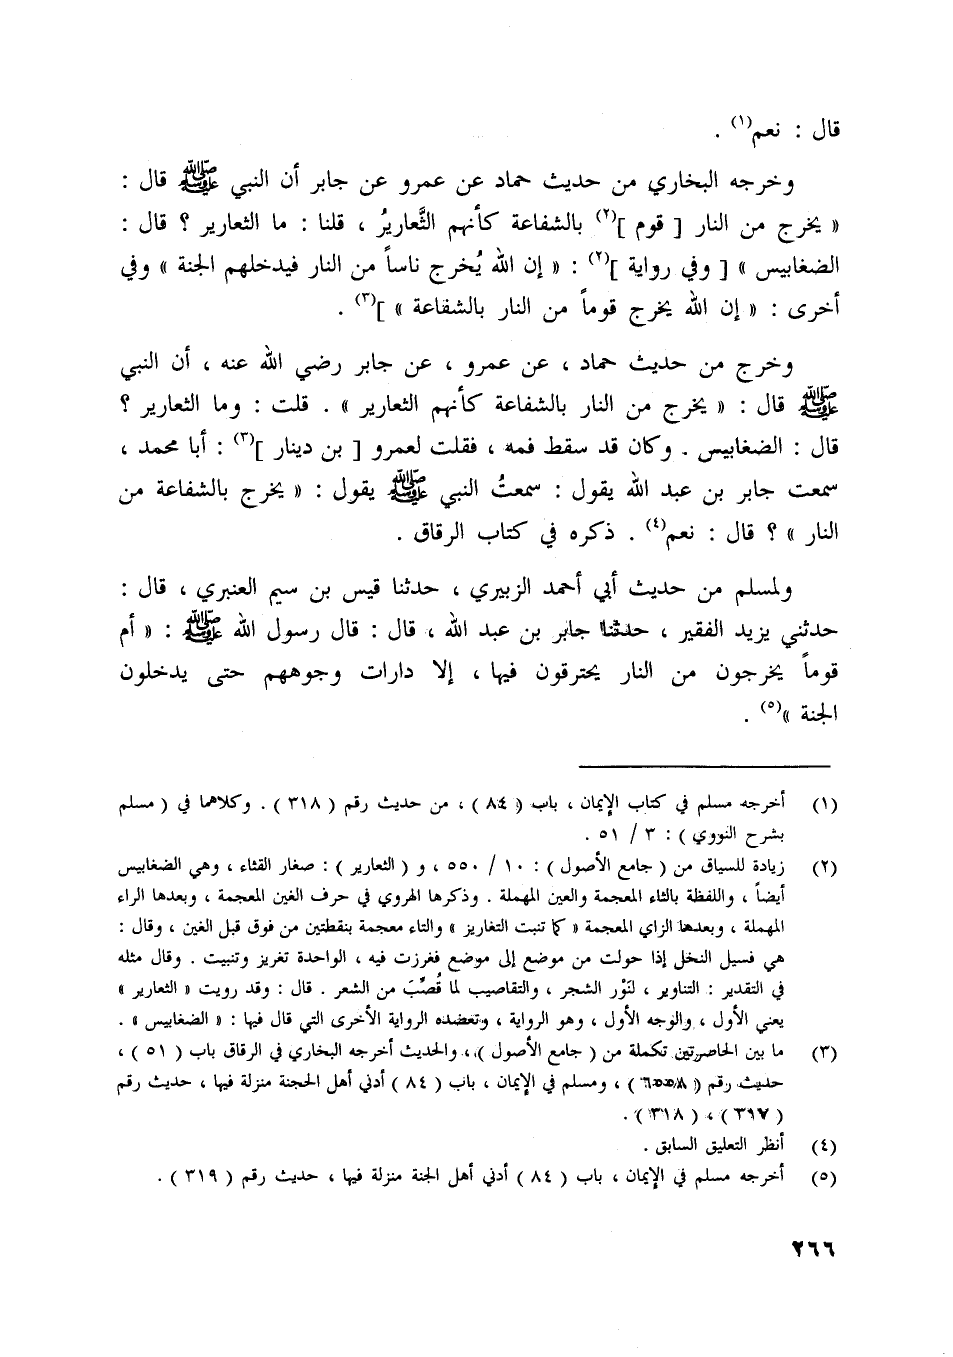 قال : نعم(١) .
وخرجه البخاري من حديث حماد عن عمرو عن جابر أن النبي ﷺ قال :
« يخرج من النار [ قوم ](٢) بالشفاعة كأنهم الثَّعاريرُ ، قلنا : ما الثعارير ؟ قال :
الضغابيس » [ وفي رواية ](٢) : « إن الله يُخرج ناساً من النار فيدخلهم الجنة » وفي
أخرى : « إن الله يخرج قوماً من النار بالشفاعة » ](٣) .
وخرج من حديث حماد ، عن عمرو ، عن جابر رضي الله عنه ، أن النبي
ﷺ قال : « يخرج من النار بالشفاعة كأنهم الثعارير » . قلت : وما الثعارير ؟
قال : الضغابيس . وكان قد سقط فمه ، فقلت لعمرو [ بن دينار ](٣) : أبا محمد ،
سمعت جابر بن عبد الله يقول : سمعتُ النبي ﷺ يقول : « يخرج بالشفاعة من
النار » ؟ قال : نعم(٤) . ذكره في كتاب الرقاق .
ولمسلم من حديث أبي أحمد الزبيري ، حدثنا قيس بن سيم العنبري ، قال :
حدثني يزيد الفقير ، حدثنا جابر بن عبد الله ، قال : قال رسول الله ﷺ : « أم
قوماً يخرجون من النار يحترقون فيها ، إلا دارات وجوههم حتى يدخلون
الجنة »(٥) .
(١) أخرجه مسلم في كتاب الإيمان ، باب ( ٨٤ ) ، من حديث رقم ( ٣١٨ ) . وكلاهما في ( مسلم
بشرح النووي ) : ٣ / ٥١ .
(٢) زيادة للسياق من ( جامع الأصول ) : ١٠ / ٥٥٠ ، و ( الثعارير ) : صغار القثاء ، وهي الضغابيس
أيضاً ، واللفظة بالثاء المعجمة والعين المهملة . وذكرها الهروي في حرف الغين المعجمة ، وبعدها الراء
المهملة ، وبعدها الزاي المعجمة « كما تنبت التغاريز » والتاء معجمة بنقطتين من فوق قبل الغين ، وقال :
هي فسيل النخل إذا حولت من موضع إلى موضع فغرزت فيه ، الواحدة تغريز وتنبيت . وقال مثله
في التقدير : التناوير ، لنَوْر الشجر ، والتقاصيب لما قُصِّبَ من الشعر . قال : وقد رويت « الثعارير »
يعني الأول ، والوجه الأول ، وهو الرواية ، وتعضده الرواية الأخرى التي قال فيها : « الضغابيس » .
(٣) ما بين الحاصرتين تكملة من ( جامع الأصول ) ، والحديث أخرجه البخاري في الرقاق باب ( ٥١ ) ،
حديث رقم ( ٦٥٥٨ ) ، ومسلم في الإيمان ، باب ( ٨٤ ) أدني أهل الجنة منزلة فيها ، حديث رقم
( ٣١٧ ) ، ( ٣١٨ ) .
(٤) أنظر التعليق السابق .
(٥) أخرجه مسلم في الإيمان ، باب ( ٨٤ ) أدني أهل الجنة منزلة فيها ، حديث رقم ( ٣١٩ ) .
٢٦٦